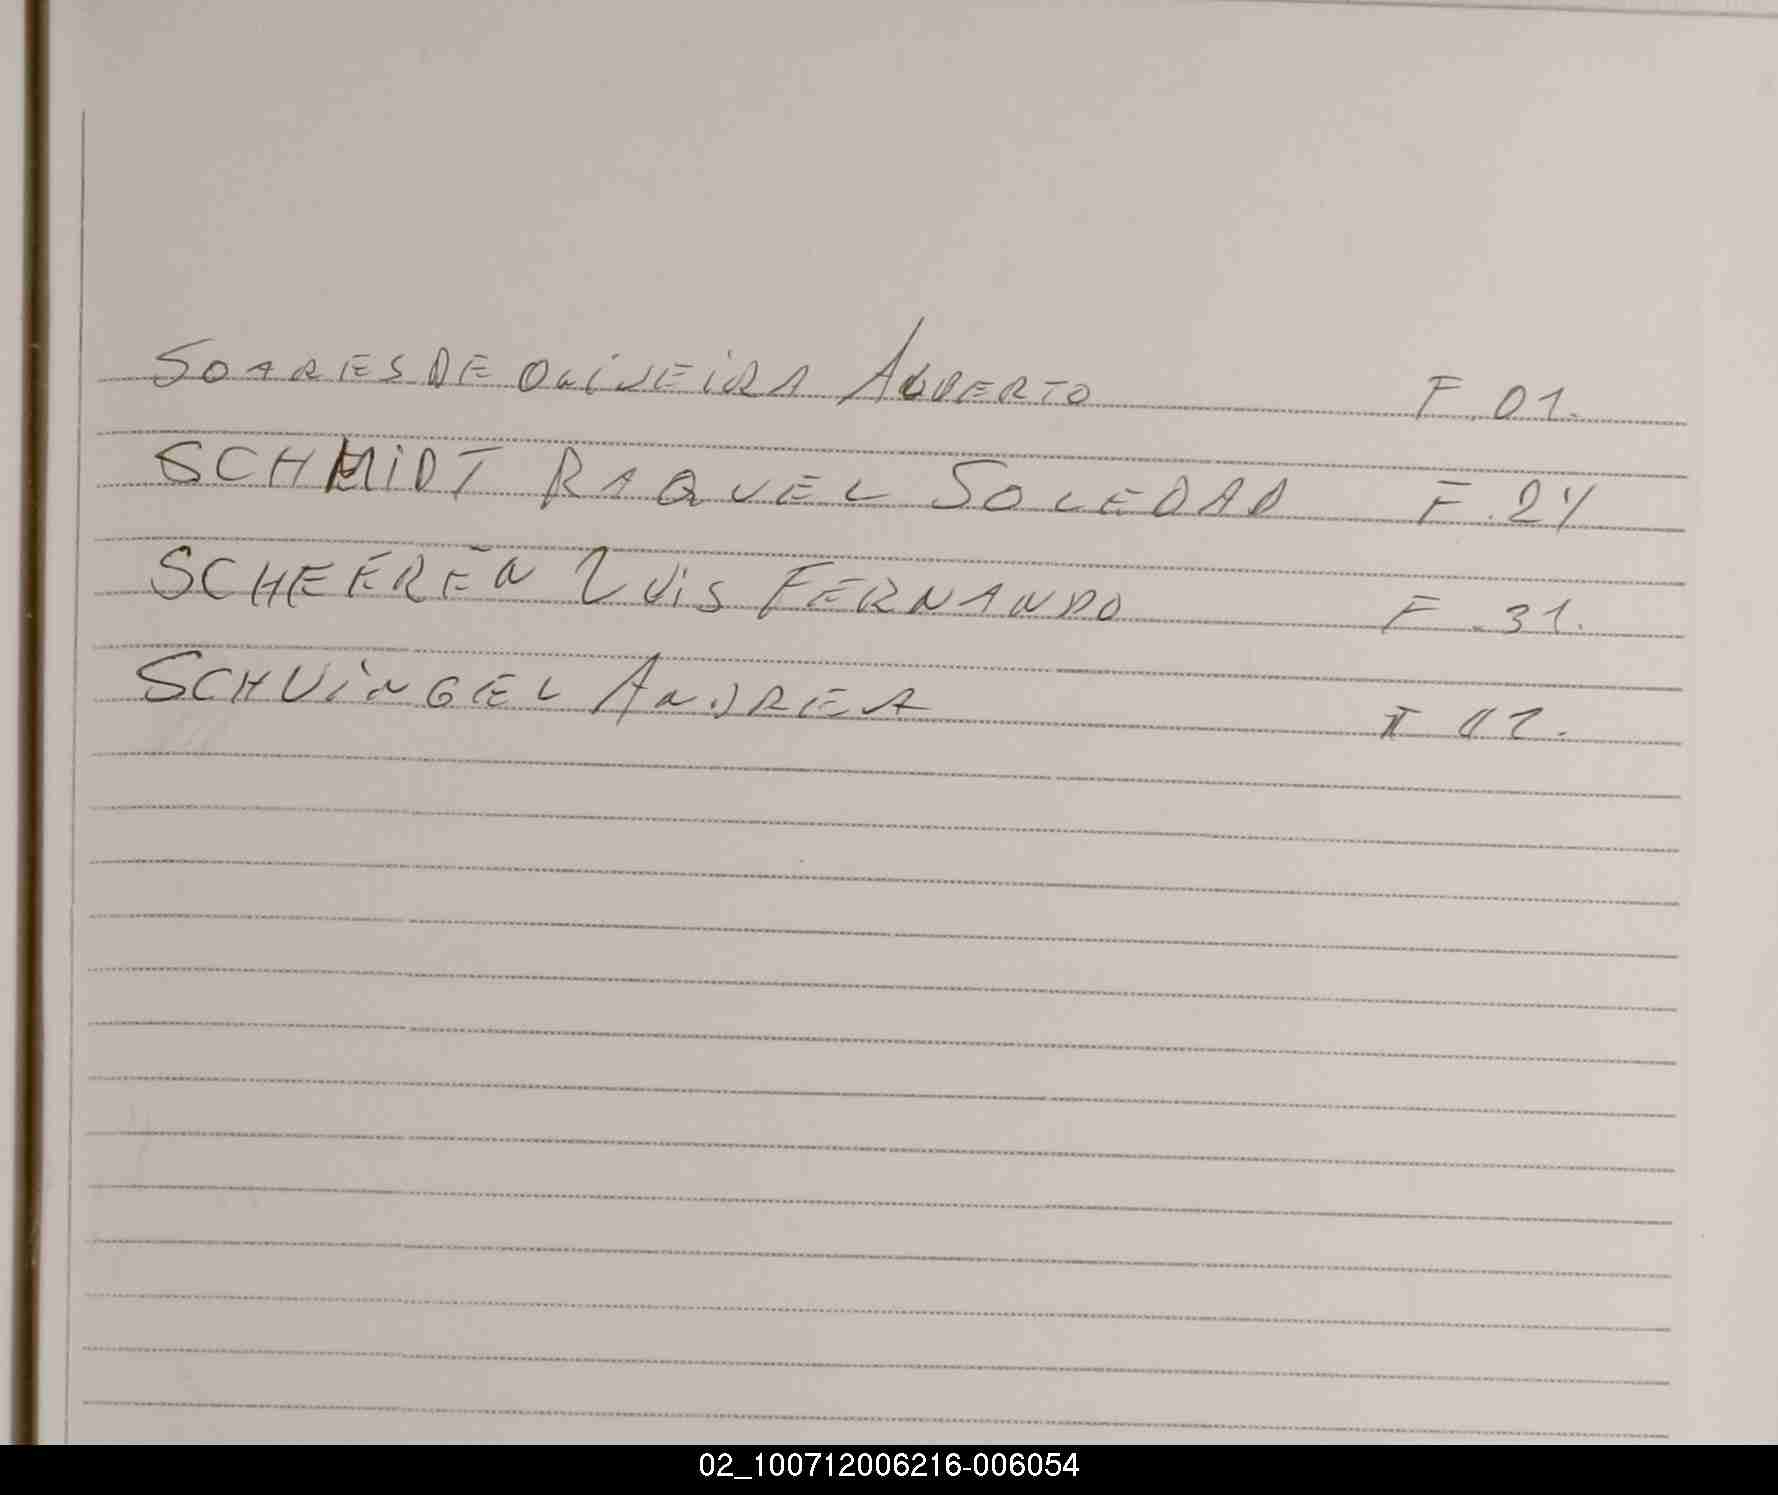 SOARES DE OLIVEIRA ALBERTO F. 01.
SCHMIDT RAQUEL SOLEDAD F. 24
SCHEEREN LUIS FERNANDO F. 31.
SCHUINGEL ANDREA
02_100712006216-006054